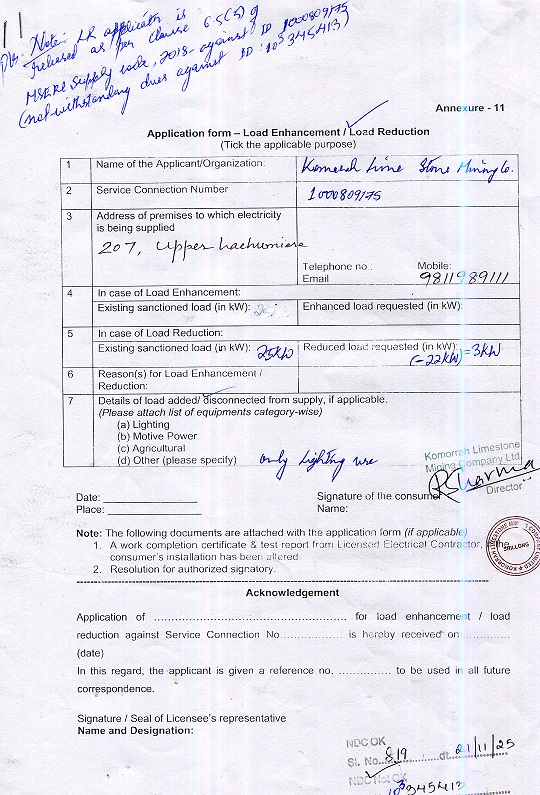 11
Note: LR application is
released as per Clause 6.5(5) of
MSERC Supply code, 2018 against ID 1000809175
(notwithstanding dues against ID: 103345413)
Annexure - 11
Application form – Load Enhancement / Load Reduction
(Tick the applicable purpose)
1 Name of the Applicant/Organization: Komorrah Lime Stone Mining Co.
2 Service Connection Number 1000809175
3 Address of premises to which electricity
is being supplied
207, Upper Lachumiere
Telephone no.. Mobile:
Email 9811989111
4 In case of Load Enhancement:
Existing sanctioned load (in kW): Enhanced load requested (in kW):
5 In case of Load Reduction:
Existing sanctioned load (in kW): 25KW Reduced load requested (in kW):
(-22KW) = 3KW
6 Reason(s) for Load Enhancement /
Reduction:
7 Details of load added/ disconnected from supply, if applicable.
(Please attach list of equipments category-wise)
(a) Lighting
(b) Motive Power
(c) Agricultural
(d) Other (please specify) only Lighting use
Komorrah Limestone
Mining Company Ltd.
RSharma
Director
Date: ________________
Place: ________________
Signature of the consumer
Name:
Note: The following documents are attached with the application form (if applicable)
1. A work completion certificate & test report from Licensed Electrical Contractor, if the
consumer's installation has been altered.
2. Resolution for authorized signatory.
SHILLONG
Acknowledgement
Application of ………………………………………… for load enhancement / load
reduction against Service Connection No…………….. is hereby received on …………
(date)
In this regard, the applicant is given a reference no. ………….. to be used in all future
correspondence.
Signature / Seal of Licensee's representative
Name and Designation:
NDC OK
Sl. No. 819 dt. 21/11/25
NDC Not OK
103345413